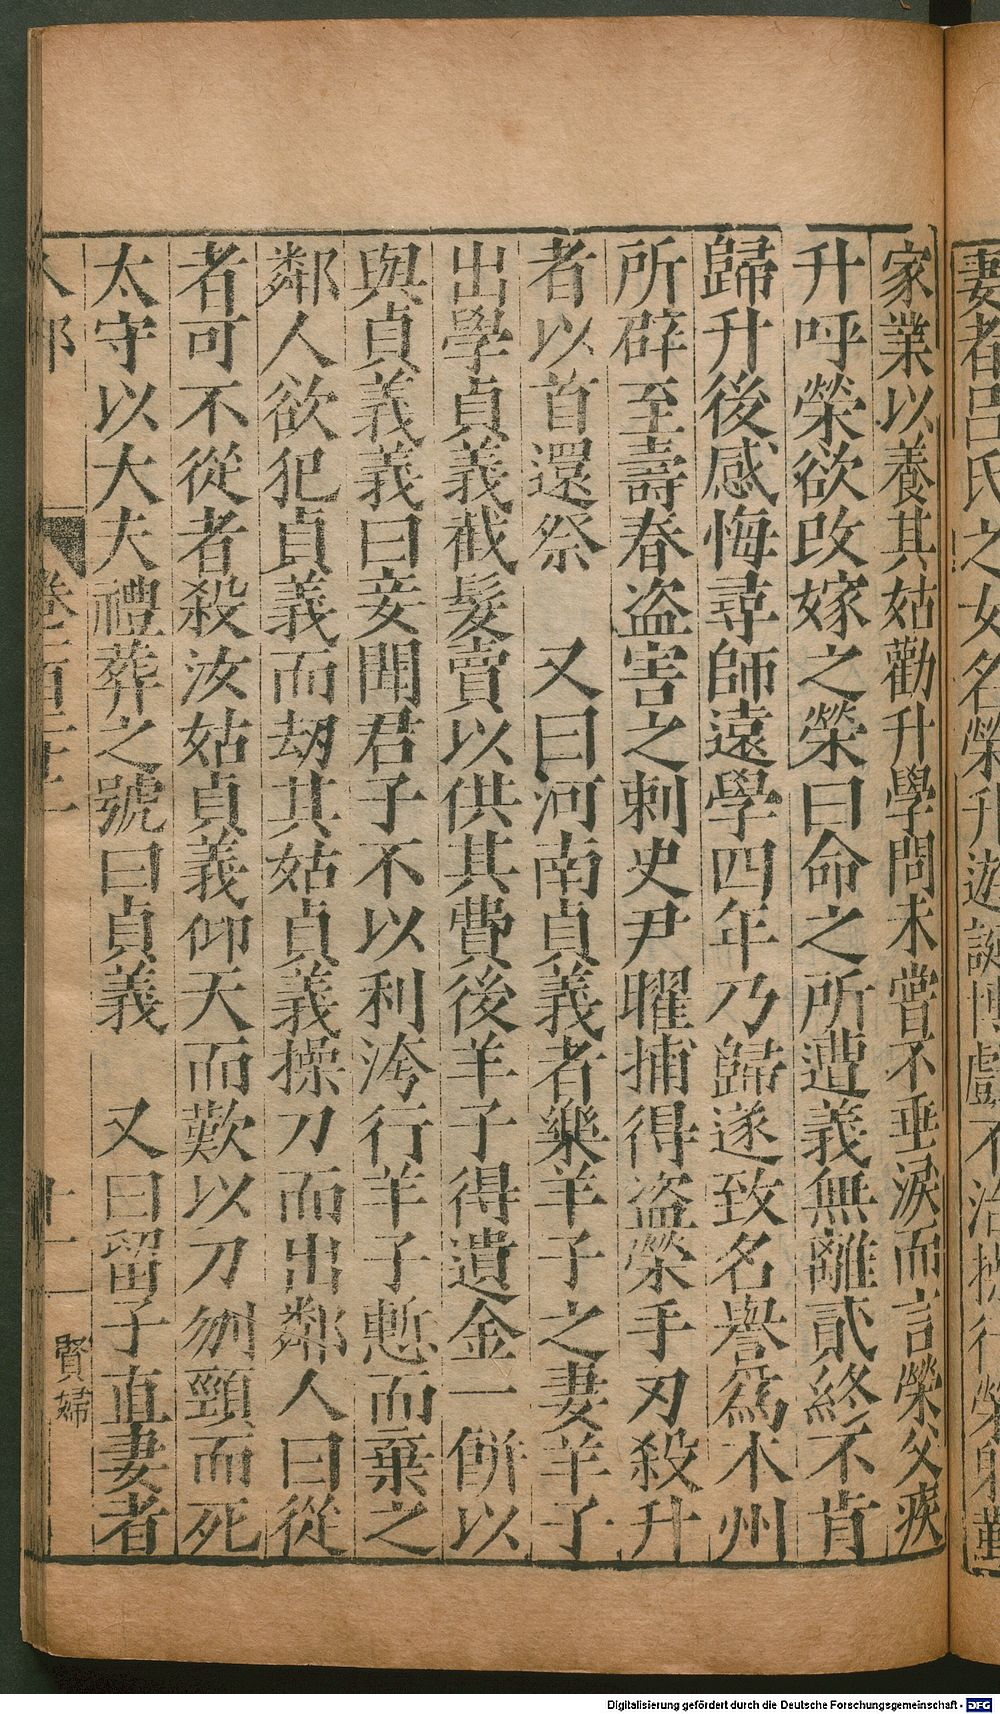 妻者呂氏之女名榮升遊誕博戲不治操行榮躬勤
家業以養其姑勸升學問未嘗不垂淚而言榮父疾
升呼榮欲改嫁之榮曰命之所遭義無離貳終不肯
歸升後感悔尋師遠學四年乃歸遂致名譽爲本州
所辟至壽春盗害之刺史尹曜捕得盗榮手刃殺升
者以首還祭 又曰河南貞義者樂羊子之妻羊子
出學貞義截髮賣以供其費後羊子得遺金一餅以
與貞義義曰妾聞君子不以利洿行羊子慙而棄之
鄰人欲犯貞義而刼其姑貞義操刀而出鄰人曰從
者可不從者殺汝姑貞義仰天而歎以刀刎頸而死
太守以大夫禮葬之號曰貞義 又曰留子直妻者
人部 卷二百二十一 十一 賢婦
Digitalisierung gefördert durch die Deutsche Forschungsgemeinschaft - DFG